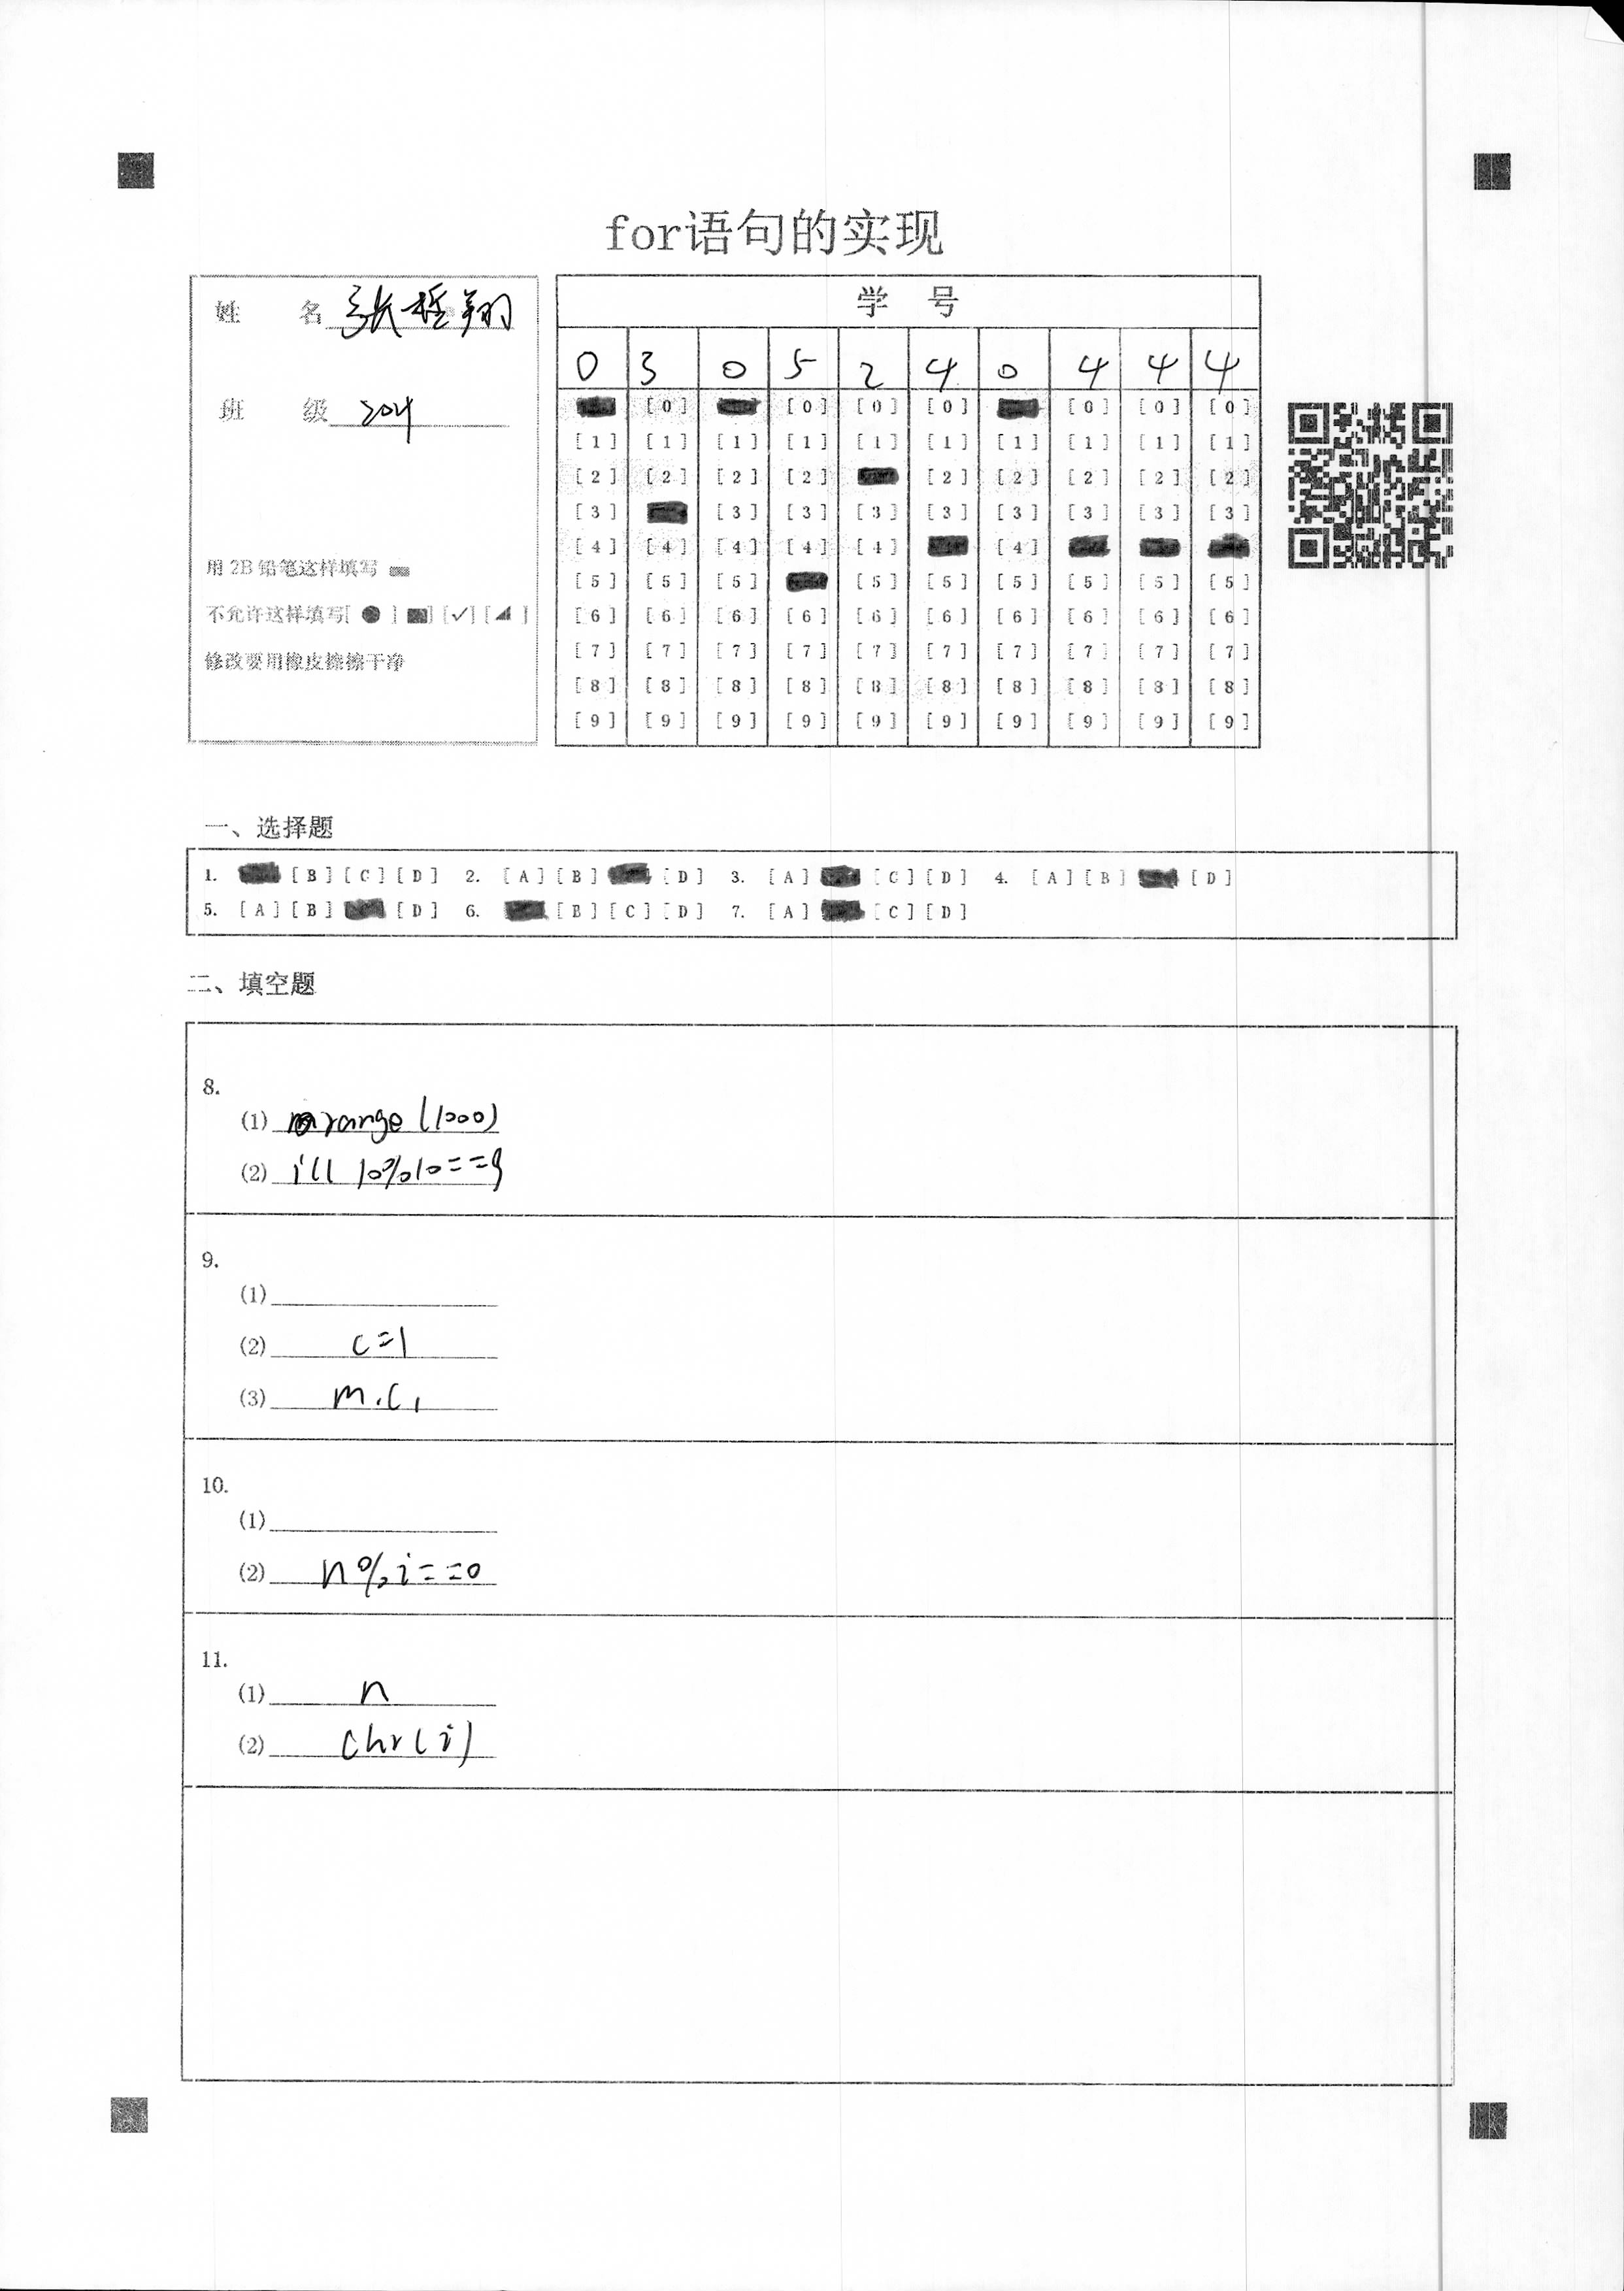 for语句的实现
姓 名 张哲翔
班 级 204
用 2B 铅笔这样填写
不允许这样填写[ ● ] [■] [✓] [◢ ]
修改要用橡皮擦擦干净
学 号
0 3 0 5 2 4 0 4 4 4
[0] [0] [0] [0] [0] [0] [0]
[1] [1] [1] [1] [1] [1] [1] [1] [1] [1]
[2] [2] [2] [2] [2] [2] [2] [2] [2]
[3] [3] [3] [3] [3] [3] [3] [3] [3]
[4] [4] [4] [4] [4] [4]
[5] [5] [5] [5] [5] [5] [5] [5] [5]
[6] [6] [6] [6] [6] [6] [6] [6] [6] [6]
[7] [7] [7] [7] [7] [7] [7] [7] [7] [7]
[8] [8] [8] [8] [8] [8] [8] [8] [8] [8]
[9] [9] [9] [9] [9] [9] [9] [9] [9] [9]
一、选择题
1. [B] [C] [D] 2. [A] [B] [D] 3. [A] [C] [D] 4. [A] [B] [D]
5. [A] [B] [D] 6. [B] [C] [D] 7. [A] [C] [D]
二、填空题
8.
(1) range(1000)
(2) i// 10%10==9
9.
(1)
(2) c=1
(3) m.c,
10.
(1)
(2) n%i==0
11.
(1) n
(2) chr(i)